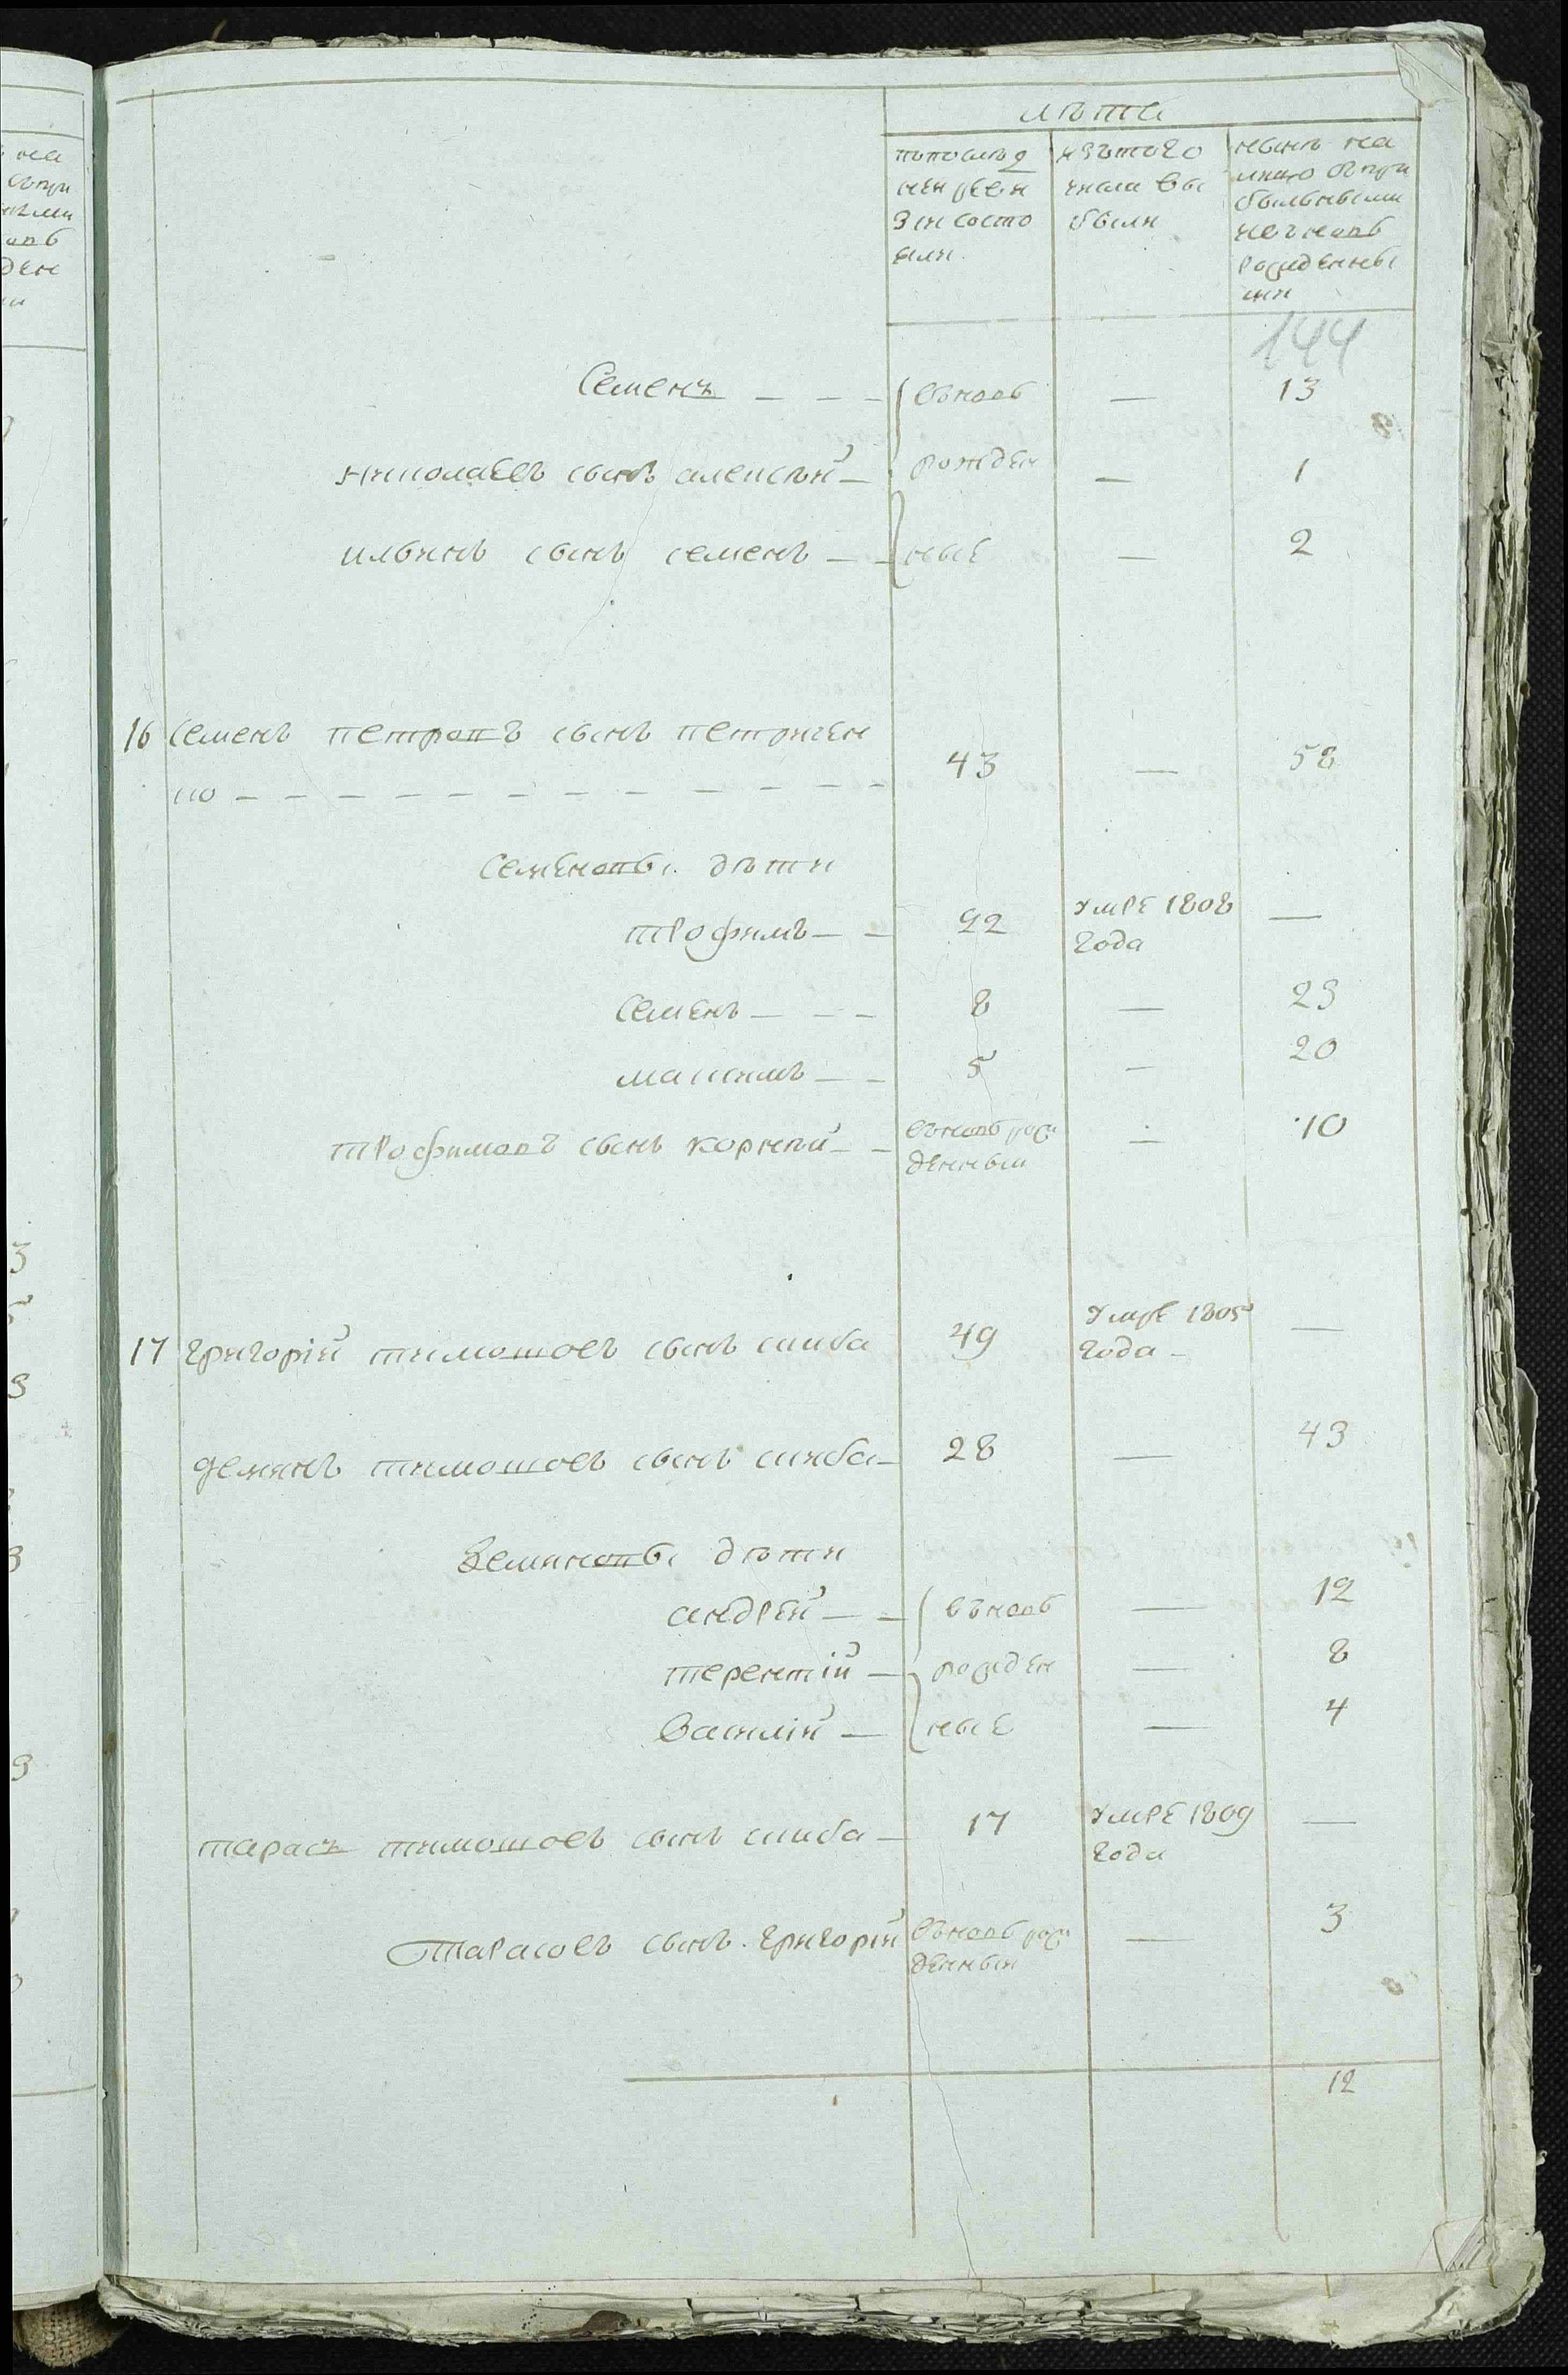 лѣта
попослѣд
ней реви
зіи состо
яли
изътого
числа вы
были
нынѣ на
лицо съпри
былыми
ивъновь
рожденны
ми
144
Семенъ — — — въновь — 13
николаевъ сынъ алексѣй — рожден — 1
ильинъ сынъ семенъ — — ные — 2
16 семенъ петровъ сынъ петричен
ко — — — — — — — — — — — — 43 — 58
семеновы дѣти
трофимъ — — 22 умре 1808 —
года
семенъ — — — 8 — 23
максимъ — — 5 — 20
трофимовъ сынъ корнѣй — — въновь рож — 10
денный
17 григорій тимошовъ сынъ скиба 49 умре 1805 —
года —
деминъ тимошовъ сынъ скиба — 28 — 43
деминовы дѣти
андрей — — въновь — 12
терентій — рожден — 8
василій — ные — 4
тарасъ тимошовъ сынъ скиба — 17 умре 1809 —
года
тарасовъ сынъ григорій въновь рож — 3
денный
12